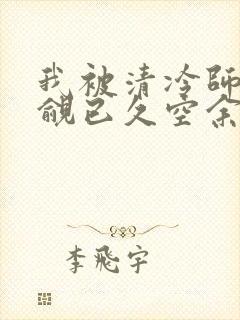 我被清冷師
覦已久空余
李飛宇